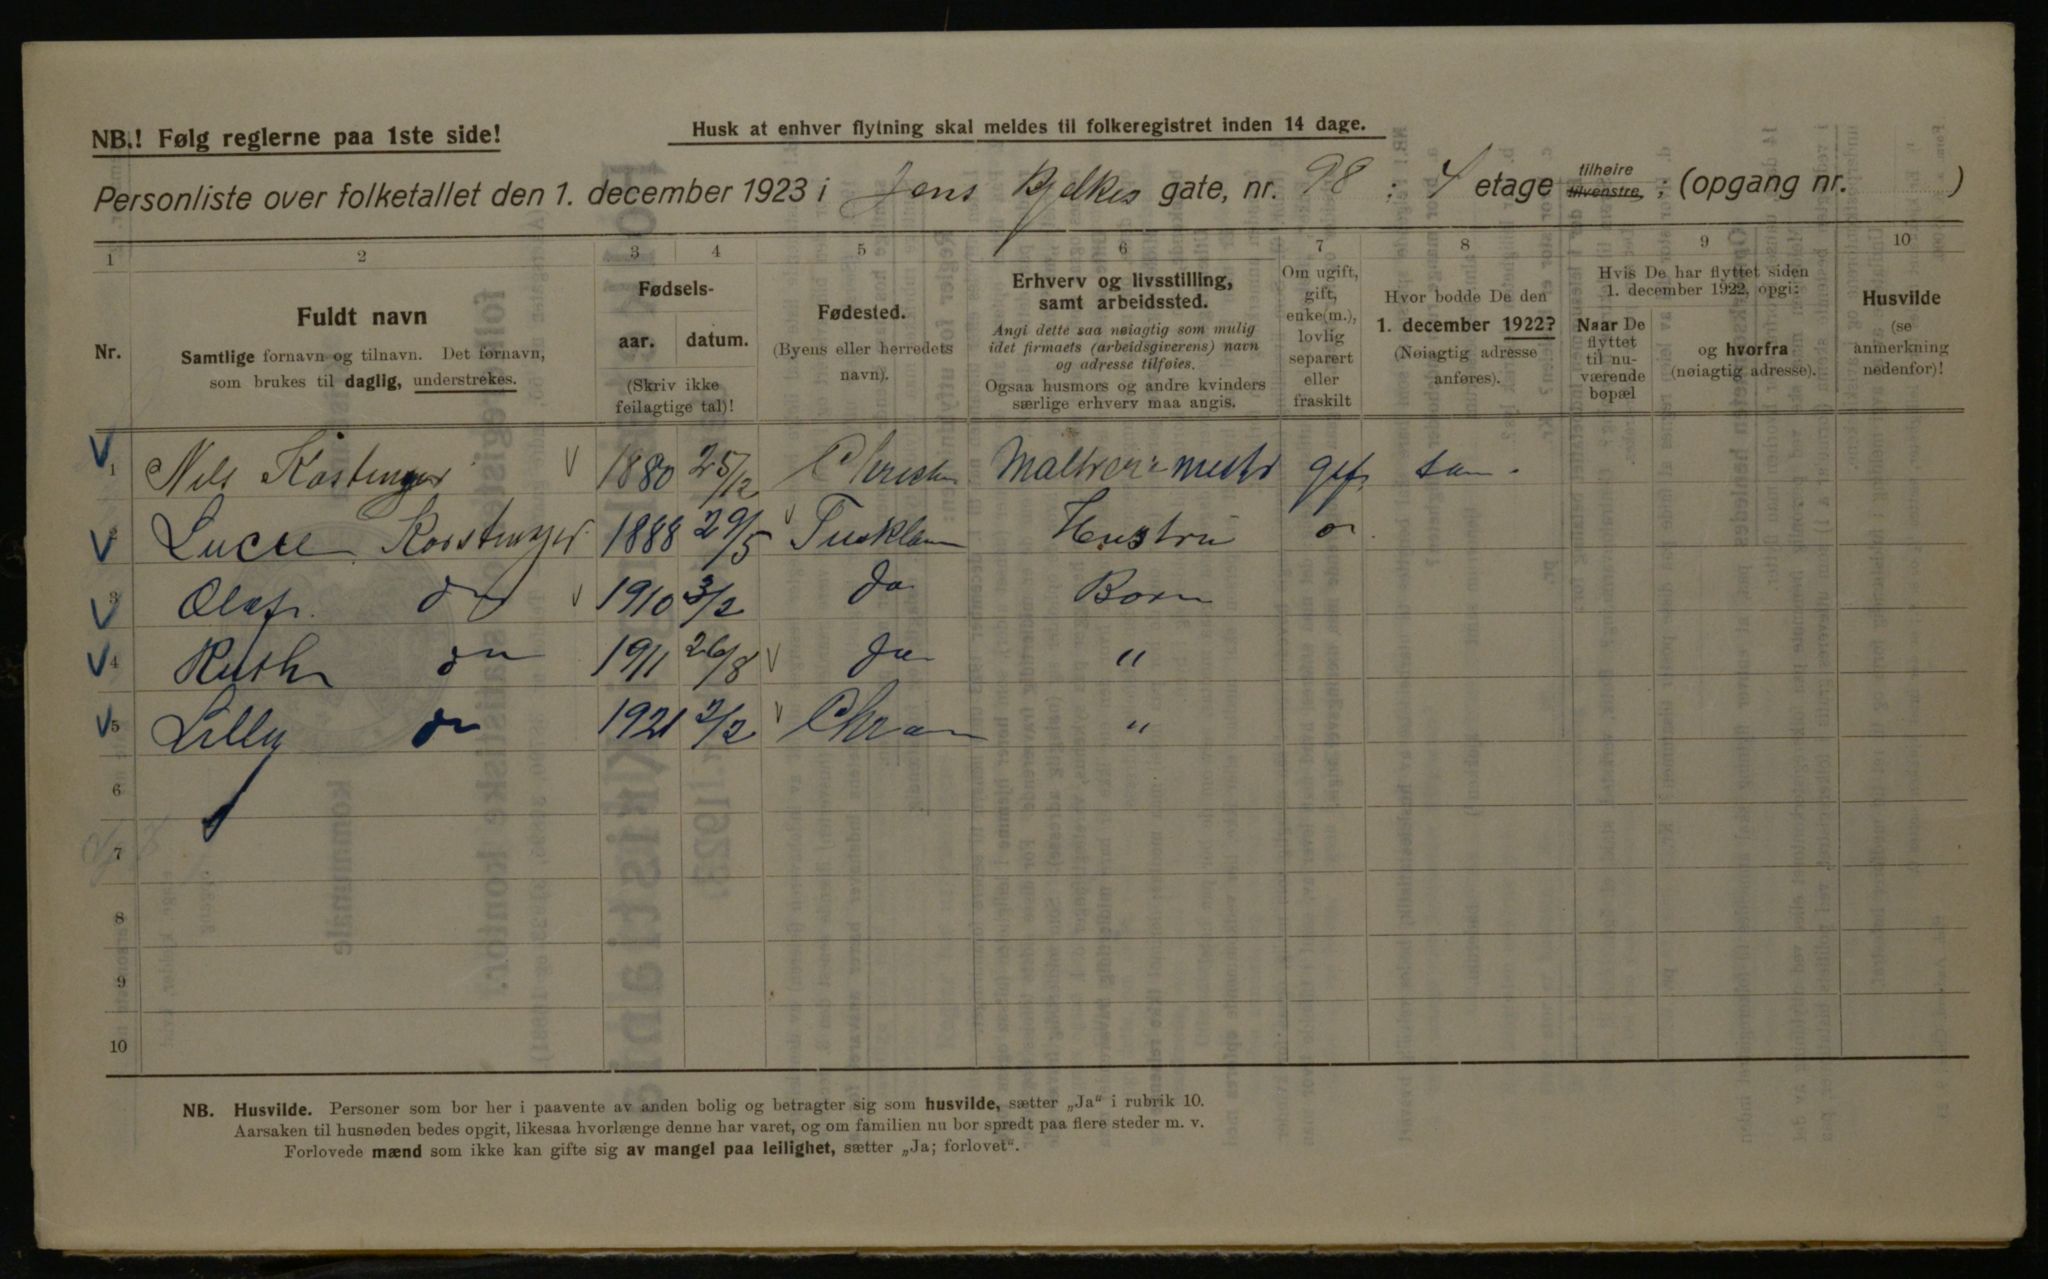 NB.! Følg reglerne paa 1ste side!
Husk at enhver flytning skal meldes til folkeregistret inden 14 dage.
Personliste over folketallet den 1. december 1923 i Jens Bjelkes gate, nr. 98 : 4 etage tilhøire tilvenstre, ; (opgang nr. )
1 2 3 4 5 6 7 8 9 10
Nr.
Fuldt navn
Samtlige fornavn og tilnavn. Det fornavn,
som brukes til daglig, understrekes.
Fødsels-
aar. datum.
(Skriv ikke
feilagtige tal)!
Fødested.
(Byens eller herredets
navn).
Erhverv og livsstilling,
samt arbeidssted.
Angi dette saa nøiagtig som mulig
idet firmaets (arbeidsgiverens) navn
og adresse tilføies.
Ogsaa husmors og andre kvinders
særlige erhverv maa angis.
Om ugift,
gift,
enke(m.),
lovlig
separert
eller
fraskilt
Hvor bodde De den
1. december 1922?
(Nøiagtig adresse
anføres).
Hvis De har flyttet siden
1. december 1922, opgi:
Naar De
flyttet
til nu-
værende
bopæl
og hvorfra
(nøiagtig adresse).
Husvilde
(se
anmerkning
nedenfor)!
1 Nils 1880 25/12 gift sam.
2 1888 29/5 Hustru do
3 Olaf. do 1910 3/2 do Børn
4 Ruth do 1911 26/8 do "
5 Lilly do 1921 2/2 Chra "
6
7
8
9
10
NB. Husvilde. Personer som bor her i paavente av anden bolig og betragter sig som husvilde, sætter „Ja“ i rubrik 10.
Aarsaken til husnøden bedes opgit, likesaa hvorlænge denne har varet, og om familien nu bor spredt paa flere steder m. v.
Forlovede mænd som ikke kan gifte sig av mangel paa leilighet, sætter „Ja; forlovet“.